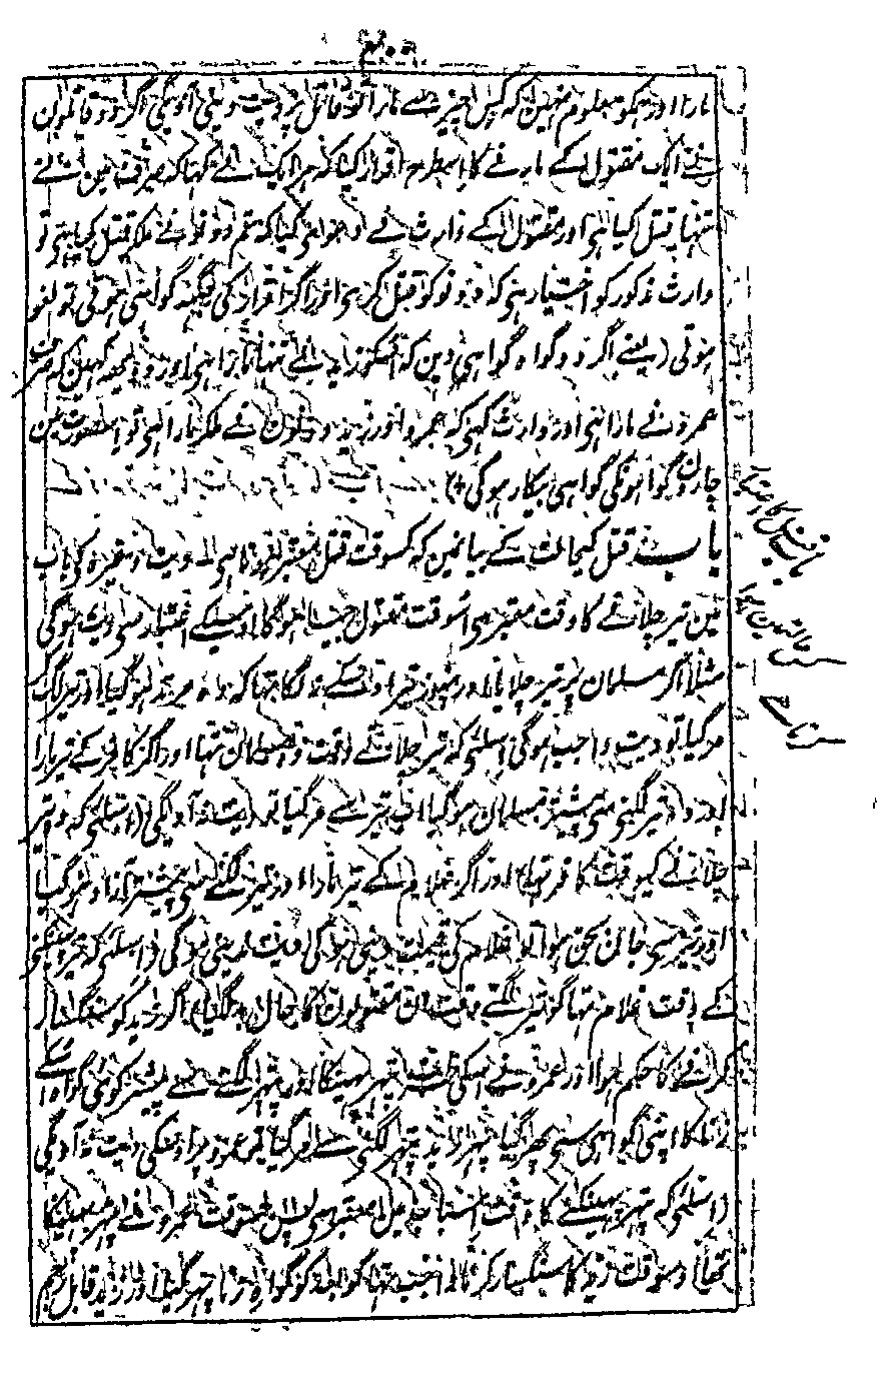 مارا اور ہکو معلوم نہین کہ کس چیز سے مارا تو قاتل پر دیت دینی آویگی اگر دو قاتلون
نے ایک مقتول کے مارنے کا اسطرح اقرار کیا کہ ہر ایک نے کہا کہ صرف مین نے
تنہا قتل کیا ہی اور مقتول کے وارث نے دعوی کیا کہ تم دونو نے ملکر قتل کیا ہی تو
وارث مذکور کو اختیار ہی کہ دونو کو قتل کرے اور اگر اقرار کی جگہ گواہی ہوتی تو لغو
ہوتی (یعنے اگر دو گواہ گواہی دین کہ اسکو زید نے تنہا مارا ہی اور دو یہہ کہین کہ صرف
عمرو نے مارا ہی اور وارث کہی کہ عمرو اور زید دونون نے ملکر مارا ہی تو اسصورت مین
چارون گواہونکی گواہی بیکار ہوگی)
باب قتل کیحالت کے بیانمین کہ کسوقت قتل معتبر ہوتا ہی دیت وغیرہ کی باب
مین تیر چلانے کا وقت معتبر ہی اسوقت مقتول جیسا ہوگا اوسکے اعتبار سی دیت ہوگی
مثلا اگر مسلمان پر تیر چلایا اور ہنوز تیر اوسکے نہ لگا تہا کہ وہ مرتد ہو گیا اور تیر لگ کر
مر گیا تو دیت واجب ہوگی اسلئے کہ تیر چلانے کے وقت وہ مسلمان تہا اور اگر کافر کے تیر مارا
اور وہ تیر لگنی سی پیشتر مسلمان ہو گیا اب تیر سے مر گیا تو دیت نہ آویگی (اسلئے کہ وہ تیر
چلانے کیوقت کافر تہا) اور اگر غلام کے تیر مارا اور تیر لگنے سی پیشتر آزاد ہو گیا
اور تیر سی جان بحق ہوا تو غلام کی قیمت دینی ہوگی دیت ندینی ہوگی (اسلئے کہ تیر پھینکنے
کے وقت غلام تہا گو تیر لگتے وقت ان مقتولون کا حال بدل گیا) اگر زید کو سنگسار
کرنے کا حکم ہوا اور عمرو نے اسکی طرف پتہر پہینکا اور پتہر لگنے سے پیشتر کوئی گواہ اسکے
زنا کا اپنی گواہی سی پھر گیا پھر زید پتہر لگنے سے مر گیا تو عمرو پر اوسکی دیت نہ آویگی
(اسلئے کہ پتہر پہینکنے کا وقت اسباب مین معتبر ہی پس جسوقت عمرو نے پتہر پہینکا
تہا اوسوقت زید کا سنگسار کرنا واجب تہا گو بعد کو گواہ زنا پہر گیا اور زید قابل رجم